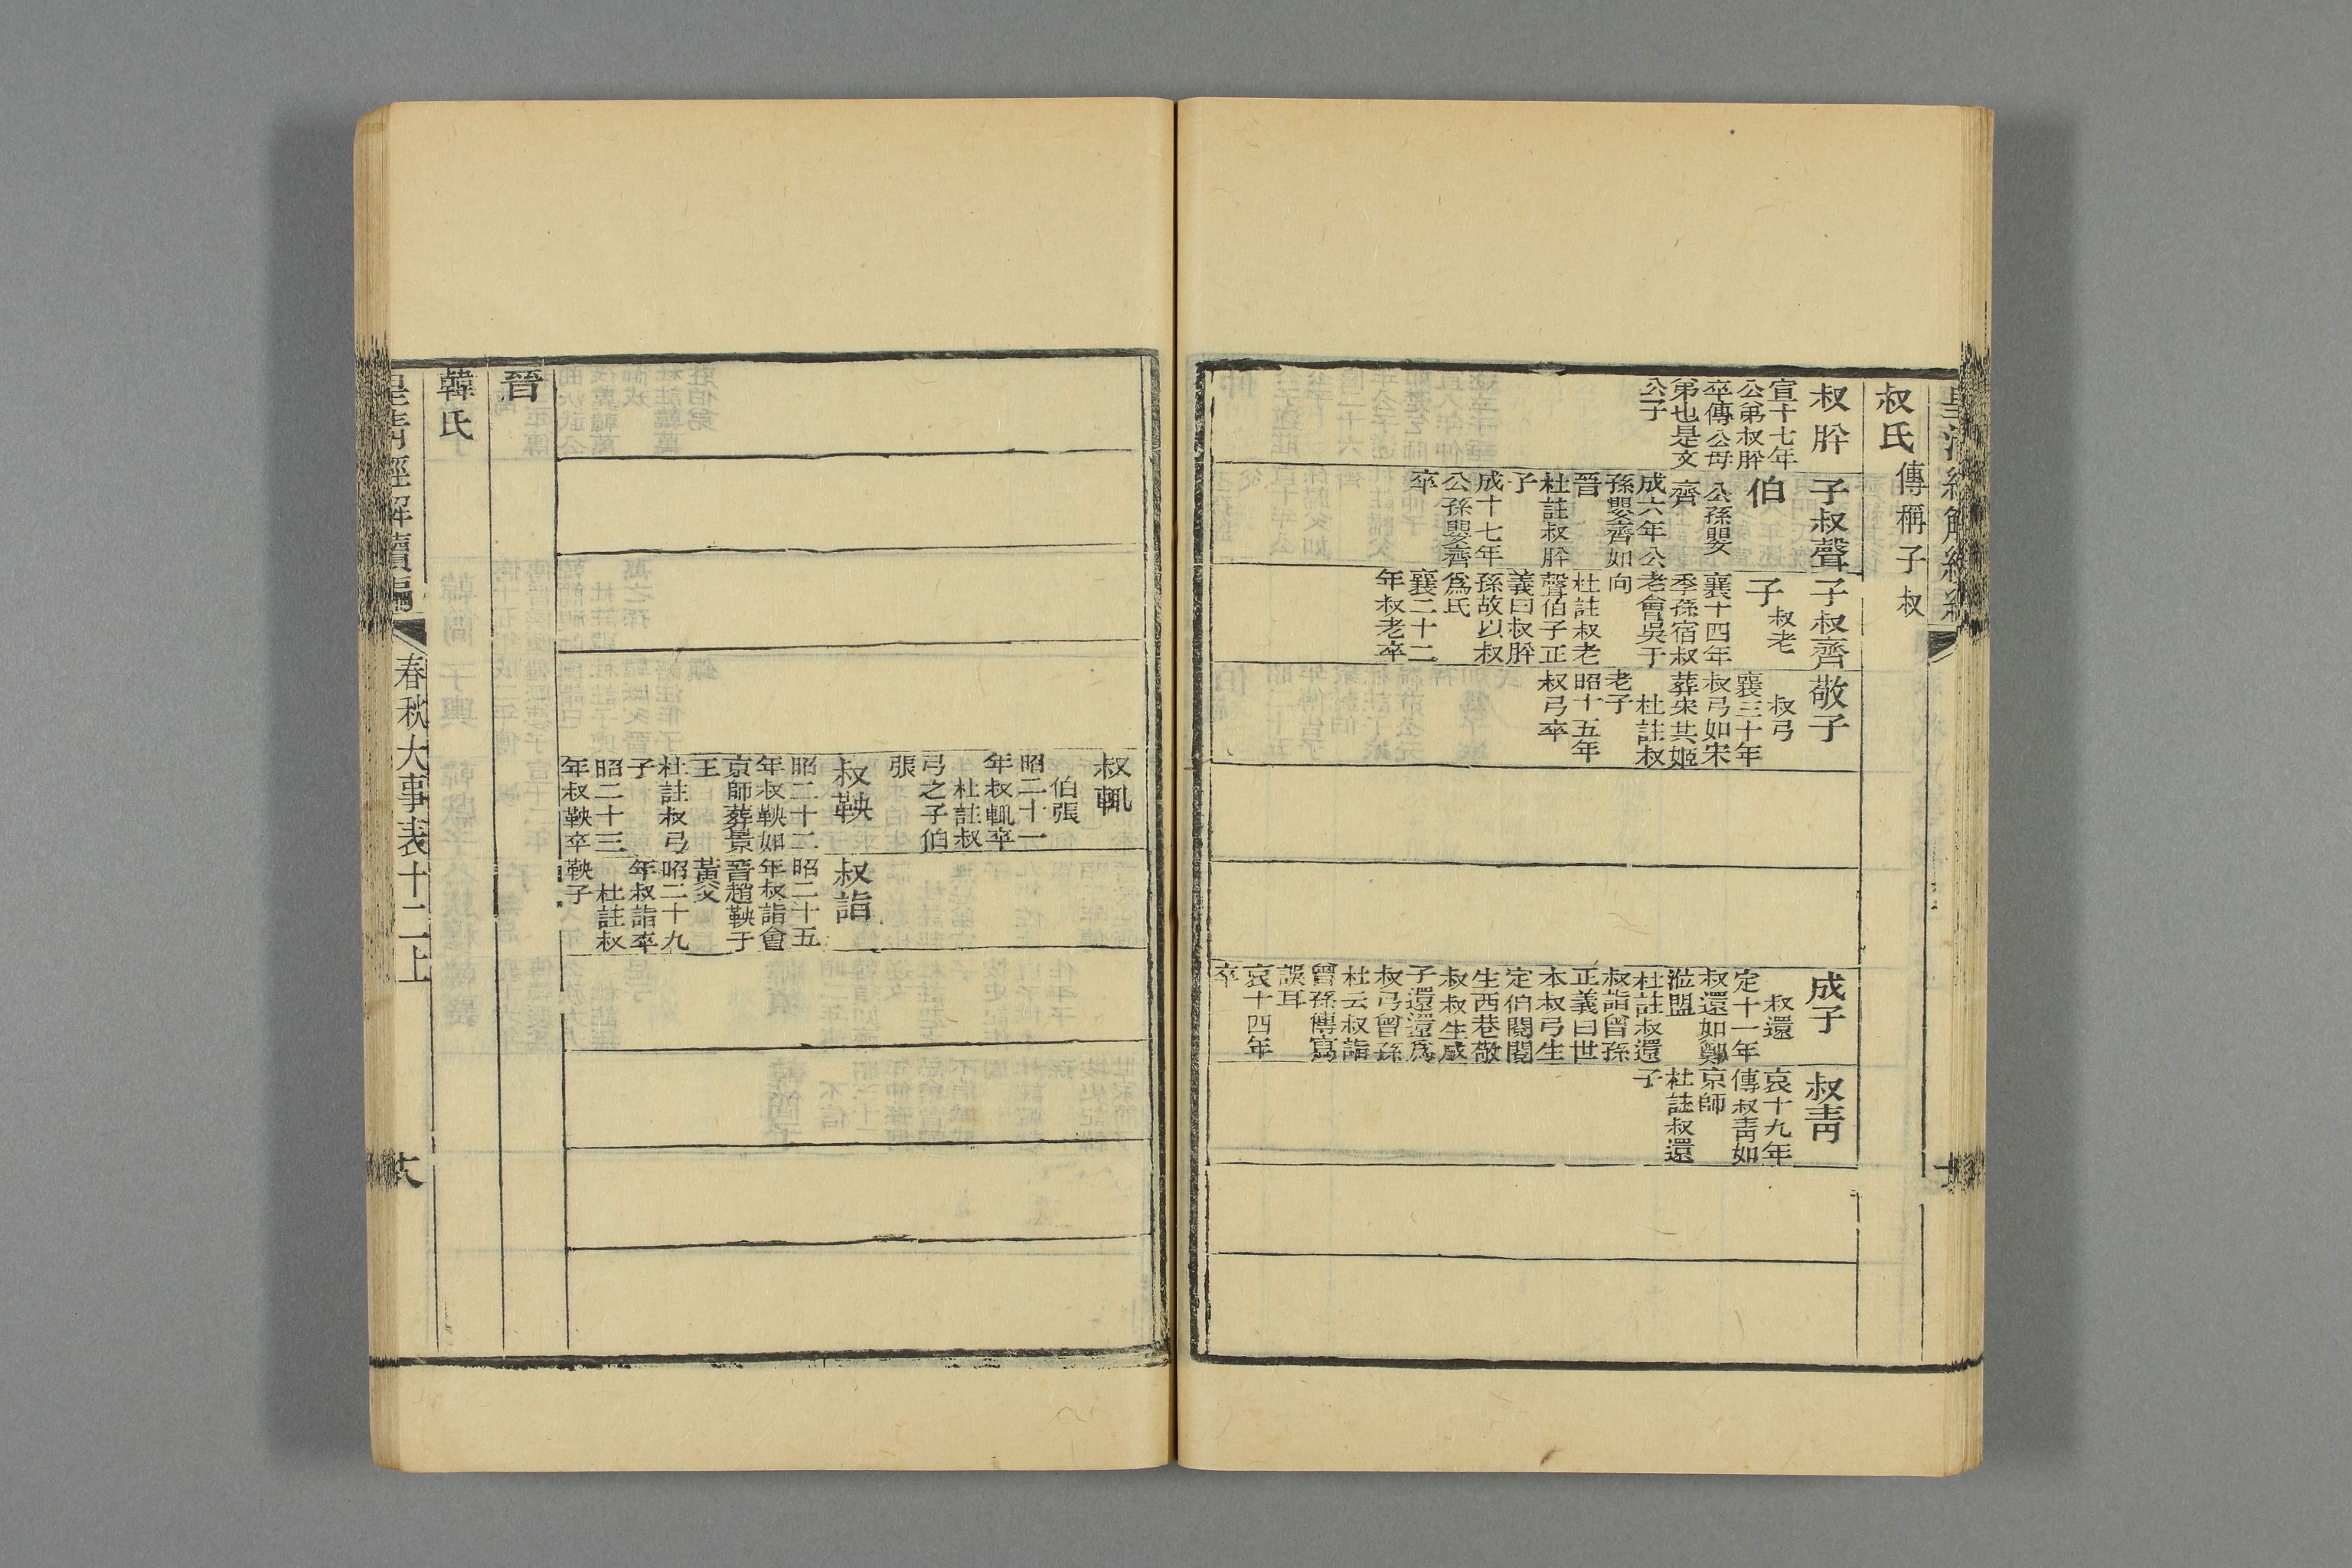 叔氏 傳稱子叔
叔肸
宣十七年
公弟叔肸
卒傳公母
弟也是文
公子
子叔聲
伯
公孫嬰
齊
成六年公
孫嬰齊如
晉
杜註叔肸
子
成十七年
公孫嬰齊
卒
子叔齊
子
叔老
襄十四年
季孫宿叔
老會吳于
向
杜註叔老
聲伯子正
義曰叔肸
孫故以叔
爲氏
襄二十二
年叔老卒
敬子
叔弓
襄三十年
叔弓如宋
葬宋共姬
杜註叔
老子
昭十五年
叔弓卒
成子
叔還
定十一年
叔還如鄭
涖盟
杜註叔還
叔詣曾孫
正義曰世
本叔弓生
定伯閱閱
生西巷敬
叔叔生成
子還還爲
叔弓曾孫
杜云叔詣
曾孫傳寫
誤耳
哀十四年
卒
叔靑
哀十九年
傳叔靑如
京師
杜註叔還
子
叔輒
伯張
昭二十一
年叔輒卒
杜註叔
弓之子伯
張
叔鞅
昭二十二
年叔鞅如
京師葬景
王
杜註叔弓
子
昭二十三
年叔鞅卒
叔詣
昭二十五
年叔詣會
晉趙鞅于
黃父
昭二十九
年叔詣卒
杜註叔
鞅子
晉
韓氏
皇淸經解續編 春秋大事表十二上